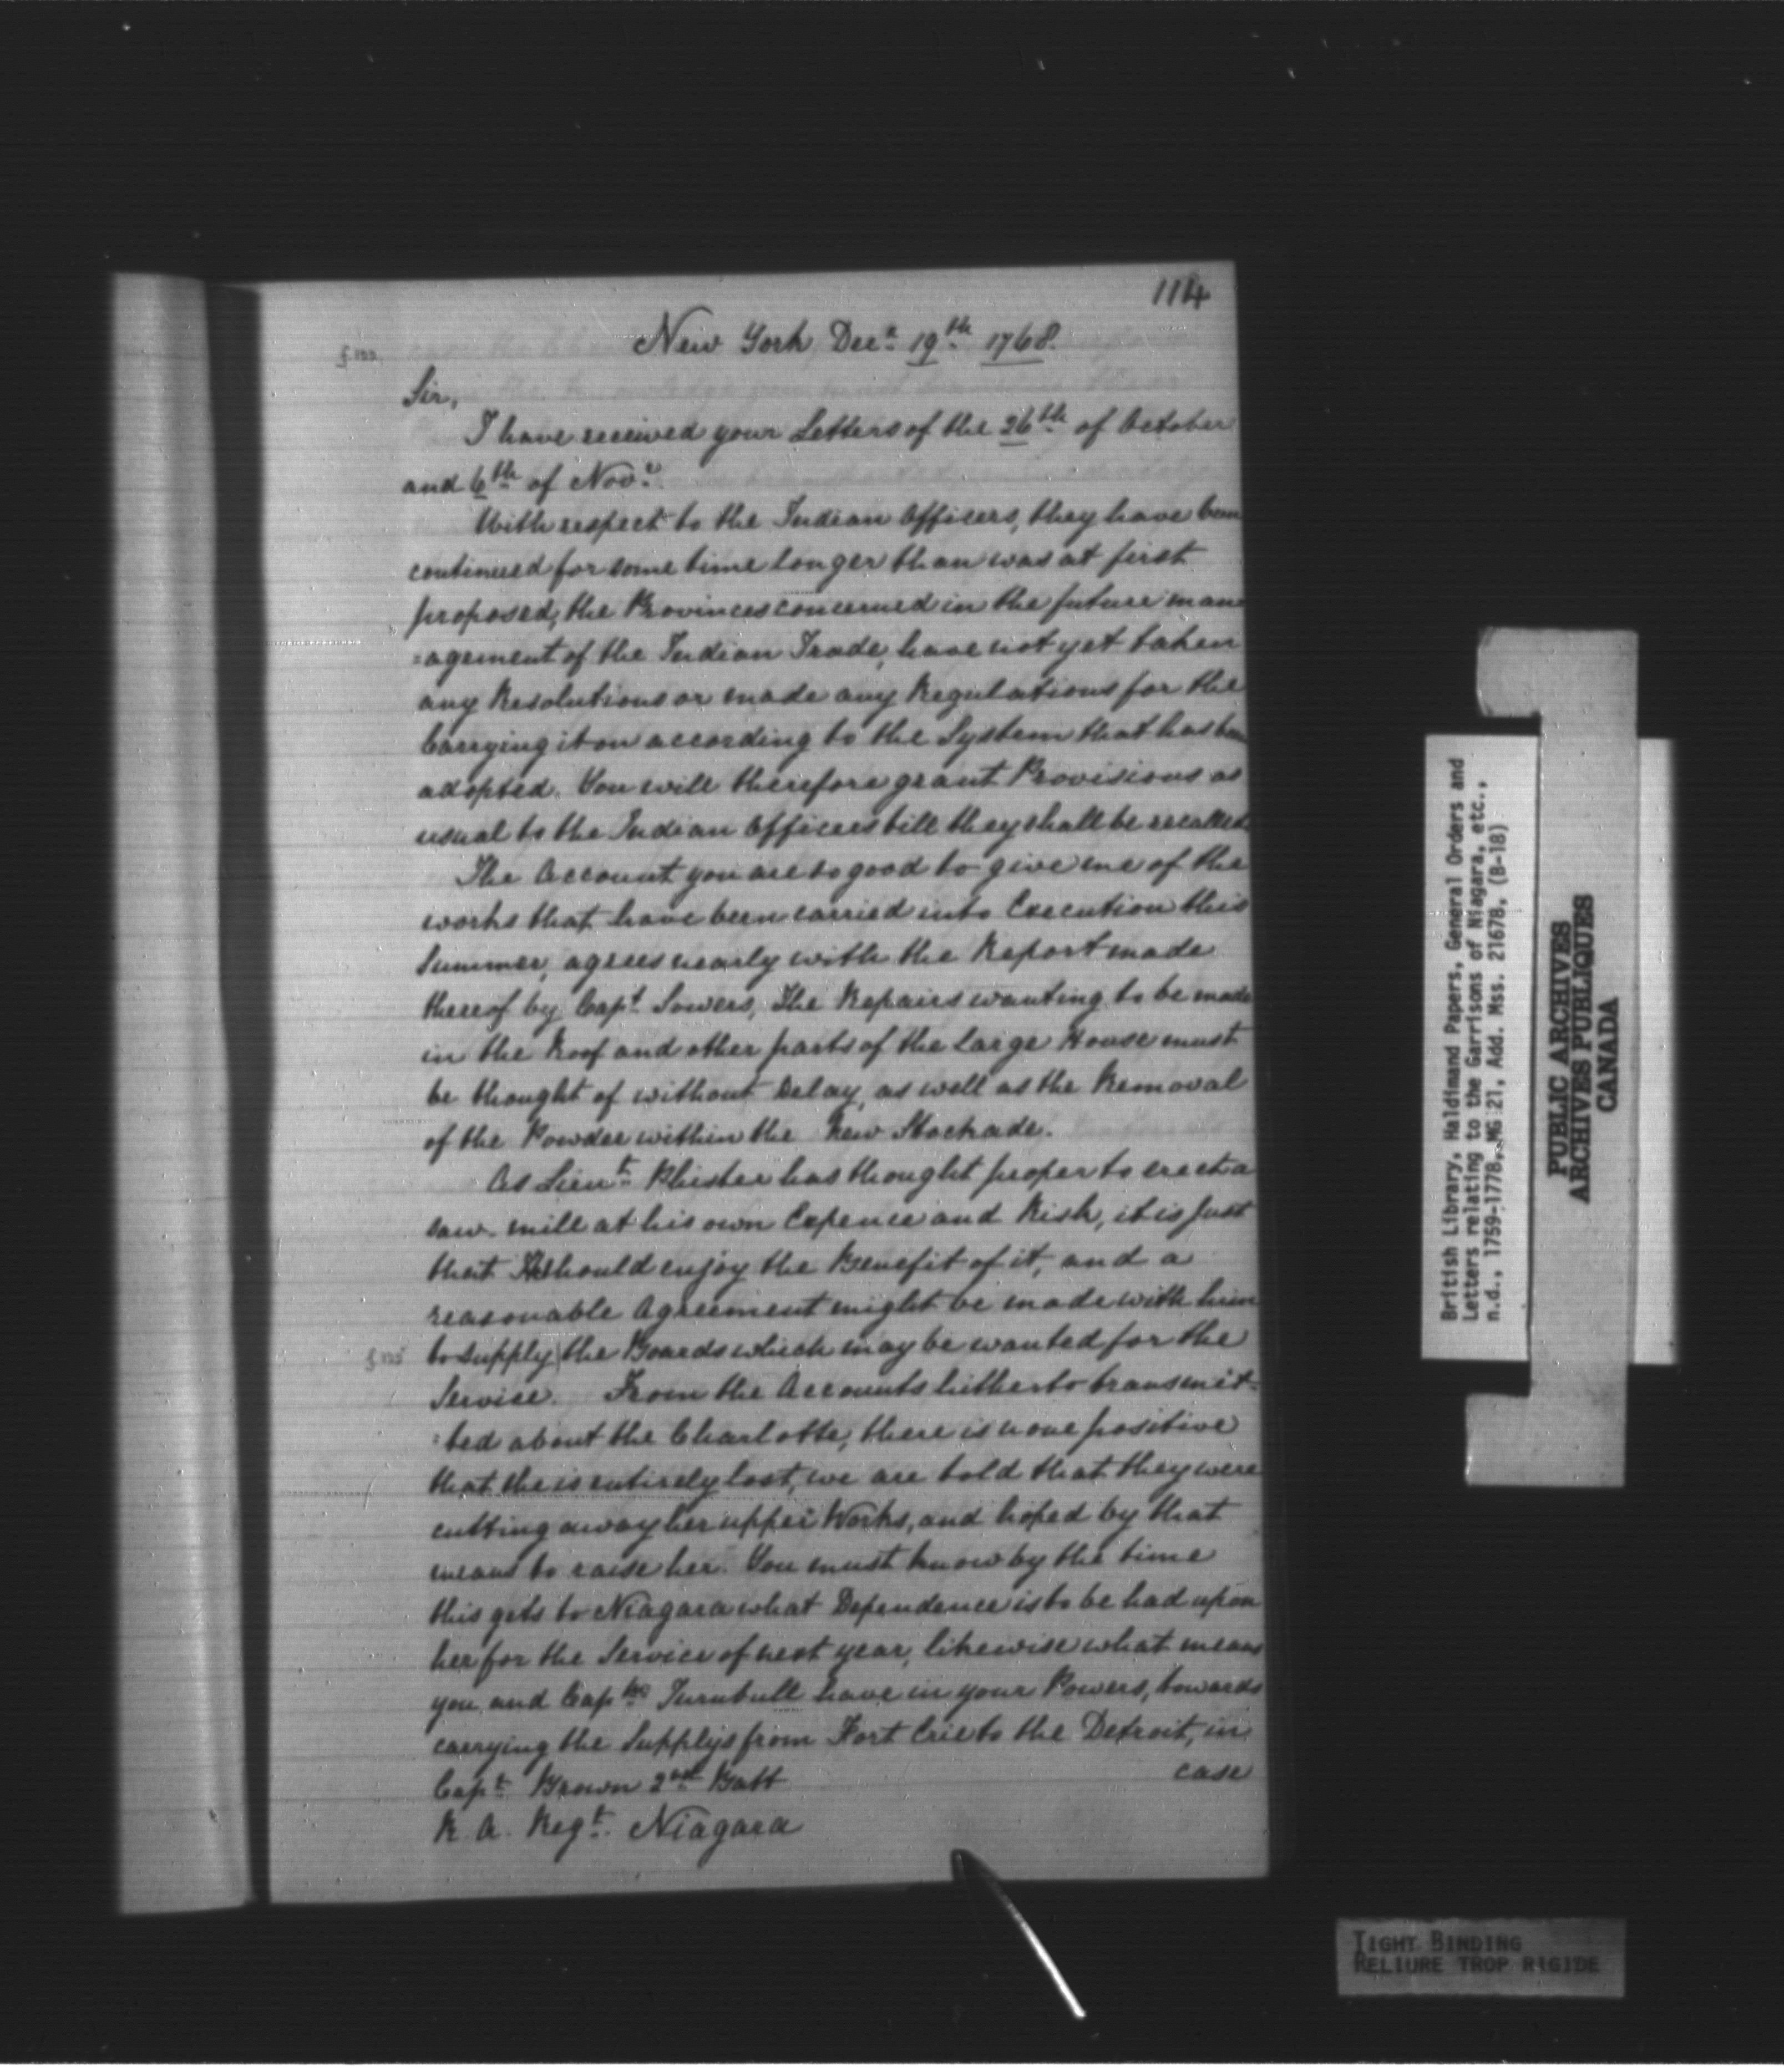 114
New York Decr 19th 1768.
Sir,
I have received your Letters of the 26th of October
and 6th of Novr.
With respect to the Indian Officers, they have been
continued for some time longer than was at first
proposed, the Provinces concerned in the future man
=agement of the Indian Trade, have not yet taken
any Resolutions or made any Regulations for the
Carrying it on according to the System that has been
adopted. You will therefore grant Provisions as
usual to the Indian Officers till they shall be recalled.
The Account you are so good to give me of the
works that have been carried into Execution this
Summer, agrees nearly with the Report made
thereof by Capt Sowers, The Repairs wanting to be made
in the Roof and other parts of the large House must
be thought of without Delay, as well as the Removal
of the Powder within the New Stockade.
As Lieut Phister has thought proper to erect a
saw-mill at his own Expence and Risk, it is Just
that He should enjoy the Benefit of it, and a
reasonable Agreement might be made with him
f 135
to supply the Boards which may be wanted for the
Service. From the Accounts hitherto transmit-
=ted about the Charlotte, there is none positive
that she is entirely lost, we are told that they were
cutting away her upper Works, and hoped by that
means to raise her. You must know by the time
this gets to Niagara what Dependence is to be had upon
her for the Service of next year, likewise what means
you and Captn Turnbull have in your Powers, towards
carrying the Supplys from Fort Erie to the Detroit, in
case
Capt Brown 2nd Batt
R. A. Regt. Niagara
British Library, Haldimand Papers, General Orders and
Letters relating to the Garrisons of Niagara, etc.,
n.d., 1759-1778, MG 21, Add. Mss. 21678, (B-18)
PUBLIC ARCHIVES
ARCHIVES PUBLIQUES
CANADA
TIGHT BINDING
RELIURE TROP RIGIDE